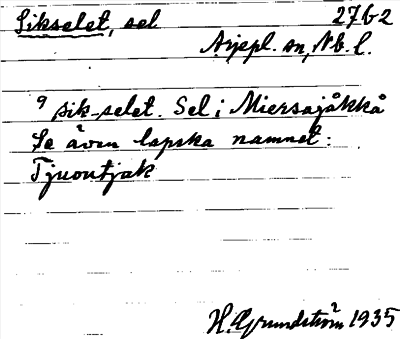 Sikselet, sel 27b2
Arjepl. sn, Nb. l.
sik-selet. Sel i Miersajåkkå
Se även lapska namnet:
Tjuoutjak
H. Grundström 1935